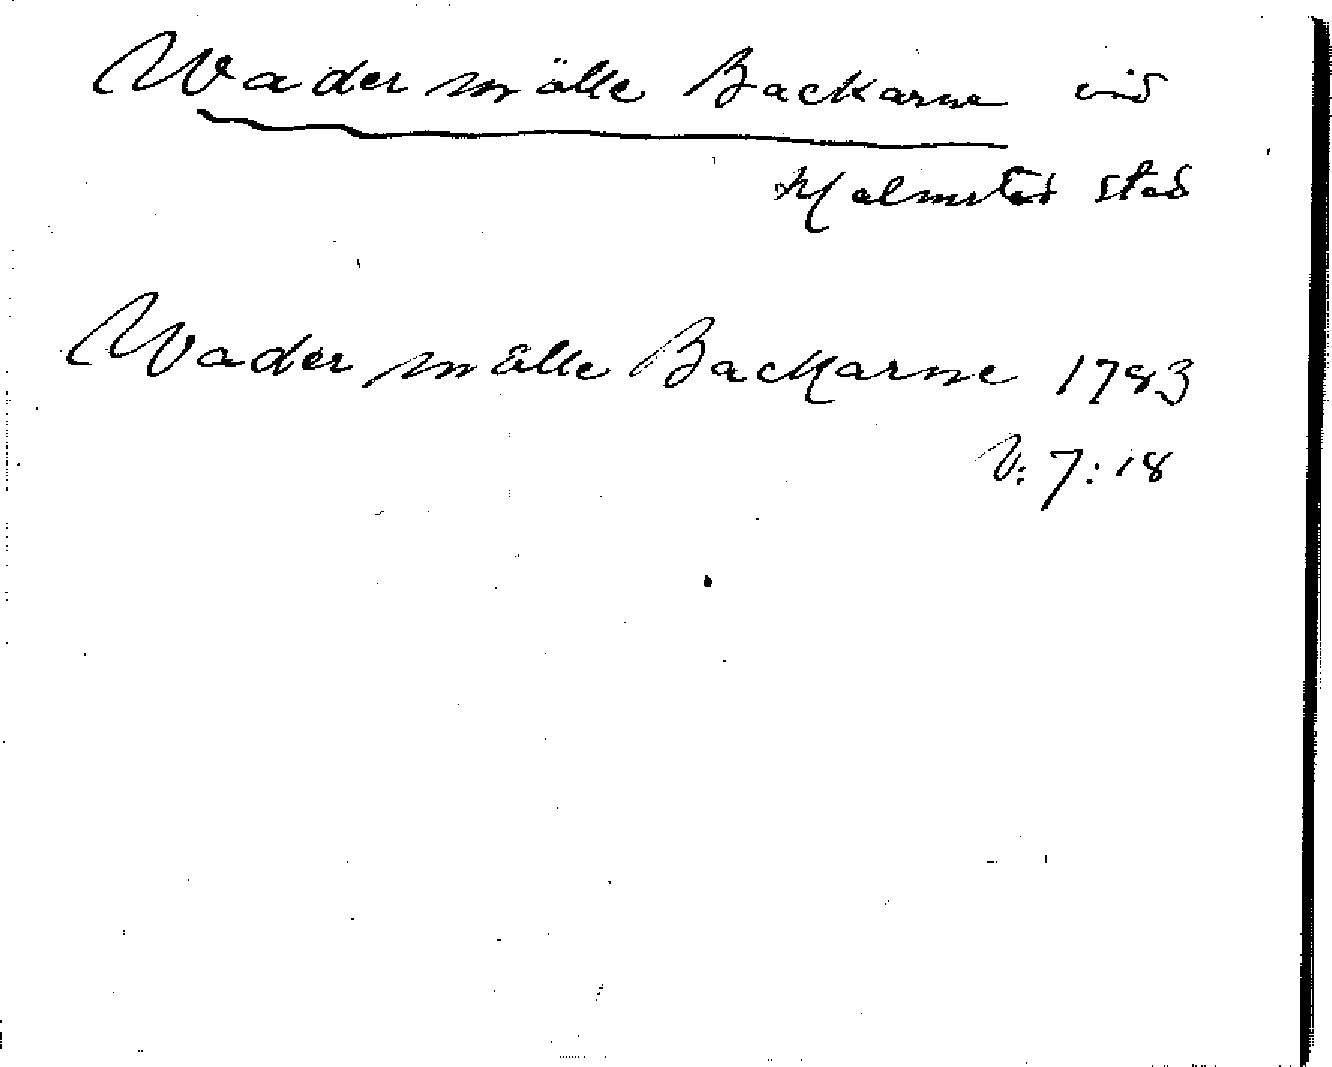 Wader mölle Backarne vid
Halmstad stad
Wader mölle Backarne 1783
V: 7: 18